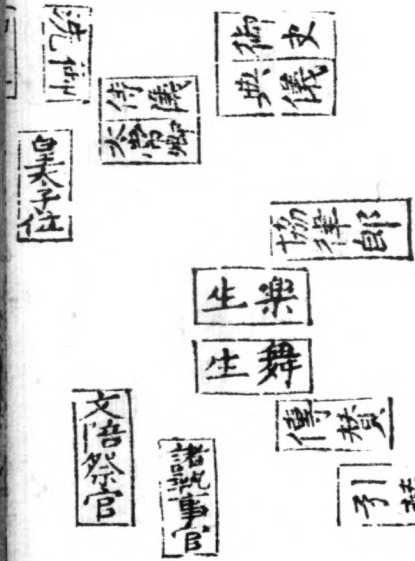 御史
典儀
侍儀
太常卿
皇太子位
協律郎
樂生
舞生
傳贊
文陪祭官
諸執事官
引